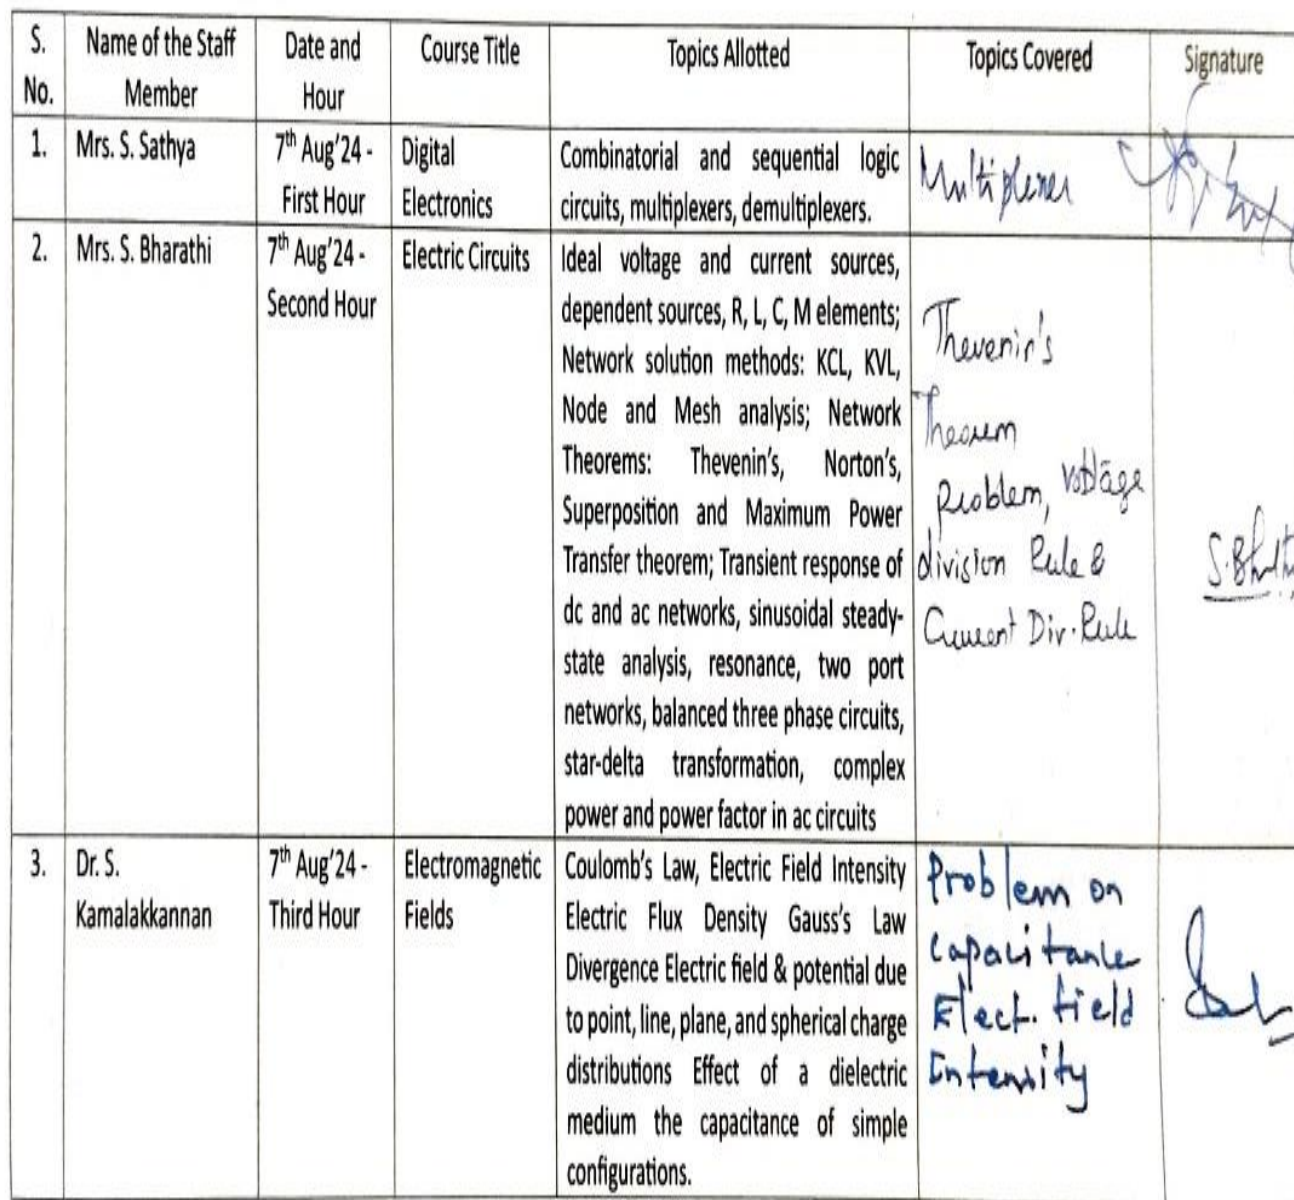 S. No.
Name of the Staff Member
Date and Hour
Course Title
Topics Allotted
Topics Covered
Signature
1.
Mrs. S. Sathya
7th Aug'24 -
First Hour
Digital
Electronics
Combinatorial and sequential logic
circuits, multiplexers, demultiplexers.
Multiplexer
2.
Mrs. S. Bharathi
7th Aug'24 -
Second Hour
Electric Circuits
Ideal voltage and current sources,
dependent sources, R, L, C, M elements;
Network solution methods: KCL, KVL,
Node and Mesh analysis; Network
Theorems: Thevenin's, Norton's,
Superposition and Maximum Power
Transfer theorem; Transient response of
dc and ac networks, sinusoidal steady-
state analysis, resonance, two port
networks, balanced three phase circuits,
star-delta transformation, complex
power and power factor in ac circuits
Thevenin's
Theorem
Problem, voltage
division Rule &
Current Div. Rule
3.
Dr. S.
Kamalakkannan
7th Aug'24 -
Third Hour
Electromagnetic
Fields
Coulomb's Law, Electric Field Intensity
Electric Flux Density Gauss's Law
Divergence Electric field & potential due
to point, line, plane, and spherical charge
distributions Effect of a dielectric
medium the capacitance of simple
configurations.
Problem on
Capacitance
Elect. field
Intensity